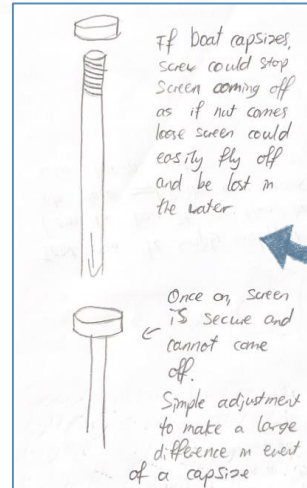 If boat capsizes,
screw could stop
screen coming off
as if nut comes
loose screen could
easily fly off
and be lost in
the water.
Once on, screen
is secure and
cannot come
off.
Simple adjustment
to make a large
difference in event
of a capsize